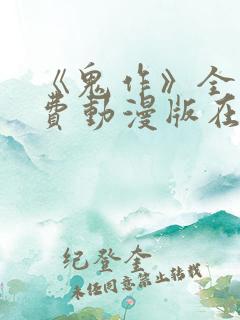 《鬼作》全
費動漫版在
纪登奎
未经同意禁止转载